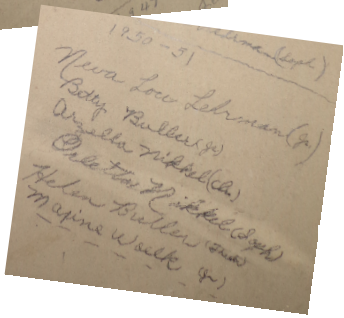 (Soph)
1930-31
Neva Lou Lehrman (Jr)
Betty Buller (Jr)
Arzella Nikkel (Jr)
Oletta Nikkel (Soph)
Helen Buller
Maxine Woelk (Jr)